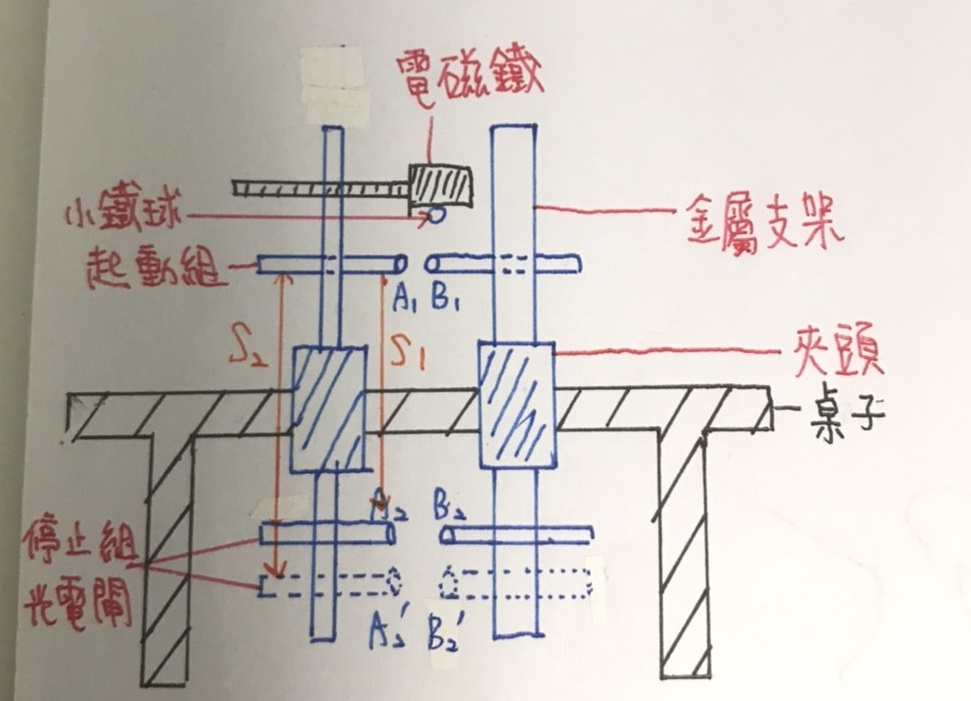 電磁鐵
小鐵球
金屬支架
起動組
A₁ B₁
S₂
S₁
夾頭
桌子
A₂ B₂
停止組
光電閘
A₂' B₂'